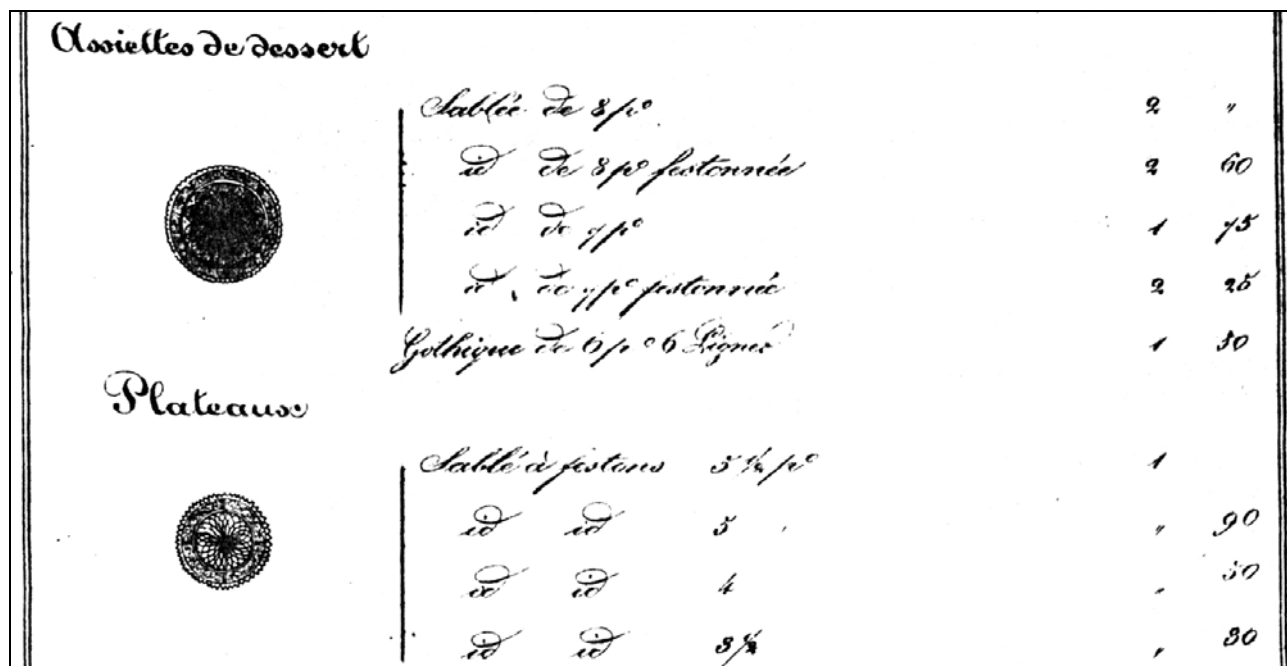 Assiettes de dessert
Sablée de 8 po 2 "
id de 8 po festonnée 2 60
id de 7 po 1 75
id de 7 po festonnée 2 25
Gothique de 6 po 6 Lignes 1 50
Plateaux
Sablé à festons 5 1/2 po 1
id id 5 " 90
id id 4 " 50
id id 3 1/2 " 30